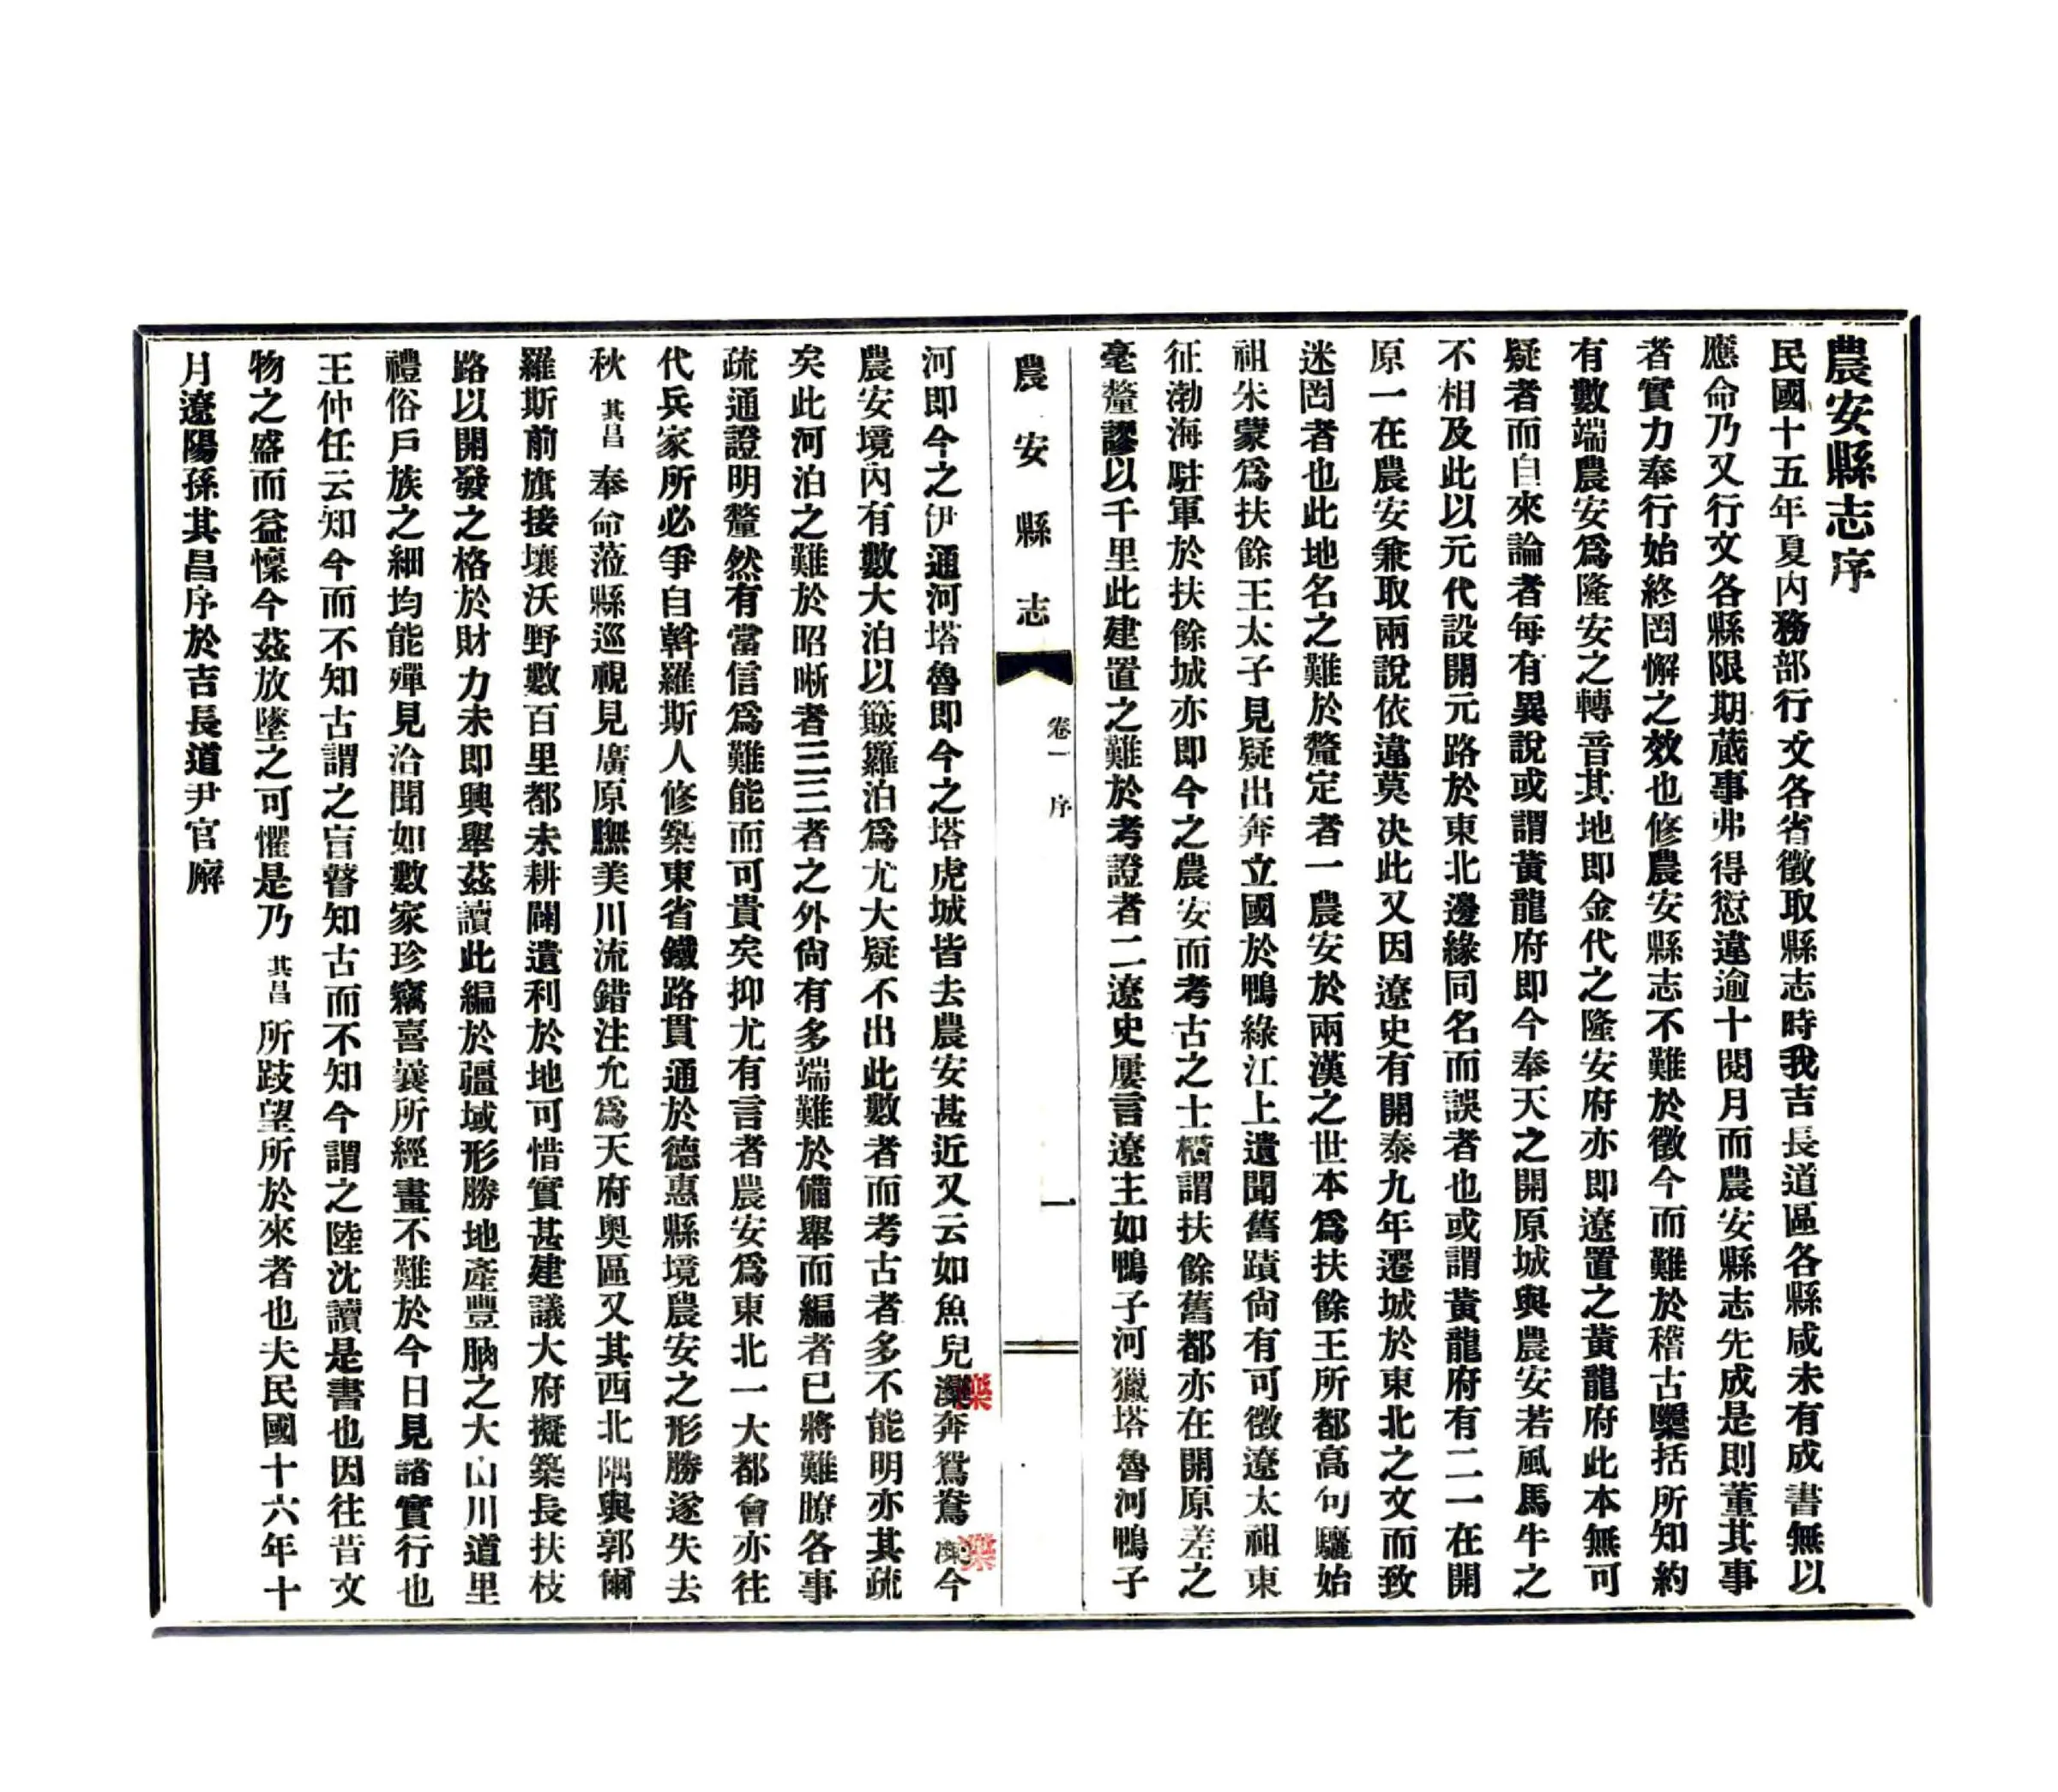 農安縣志序
民國十五年夏內務部行文各省徵取縣志時我吉長道區各縣咸未有成書無以
應命乃又行文各縣限期蕆事弗得愆違逾十閱月而農安縣志先成是則董其事
者實力奉行始終罔懈之效也修農安縣志不難於徵今而難於稽古檃括所知約
有數端農安爲隆安之轉音其地即金代之隆安府亦即遼置之黃龍府此本無可
疑者而自來論者每有異說或謂黃龍府即今奉天之開原城與農安若風馬牛之
不相及此以元代設開元路於東北邊緣同名而誤者也或謂黃龍府有二一在開
原一在農安兼取兩說依違莫决此又因遼史有開泰九年遷城於東北之文而致
迷罔者也此地名之難於釐定者一農安於兩漢之世本爲扶餘王所都高句驪始
祖朱蒙爲扶餘王太子見疑出奔立國於鴨綠江上遺聞舊蹟尙有可徵遼太祖東
征渤海駐軍於扶餘城亦即今之農安而考古之士稽謂扶餘舊都亦在開原差之
毫釐謬以千里此建置之難於考證者二遼史屢言遼主如鴨子河獵塔魯河鴨子
農安縣志
卷一 序
一
河即今之伊通河塔魯即今之塔虎城皆去農安甚近又云如魚兒濼奔鴛鴦濼今
農安境內有數大泊以簸籮泊爲尤大疑不出此數者而考古者多不能明亦其疏
矣此河泊之難於昭晰者三三者之外尙有多端難於備舉而編者已將難瞭各事
疏通證明釐然有當信爲難能而可貴矣抑尤有言者農安爲東北一大都會亦往
代兵家所必爭自斡羅斯人修築東省鐵路貫通於德惠縣境農安之形勝遂失去
秋其昌奉命蒞縣巡視見廣原膴美川流錯注允爲天府奧區又其西北隅與郭爾
羅斯前旗接壤沃野數百里都未耕闢遺利於地可惜實甚建議大府擬築長扶枝
路以開發之格於財力未即興舉茲讀此編於疆域形勝地產豐朒之大山川道里
禮俗戶族之細均能殫見洽聞如數家珍竊喜曩所經畫不難於今日見諸實行也
王仲任云知今而不知古謂之盲瞽知古而不知今謂之陸沈讀是書也因往昔文
物之盛而益懍今茲放墜之可懼是乃其昌所跂望所於來者也夫民國十六年十
月遼陽孫其昌序於吉長道尹官廨
濼
濼